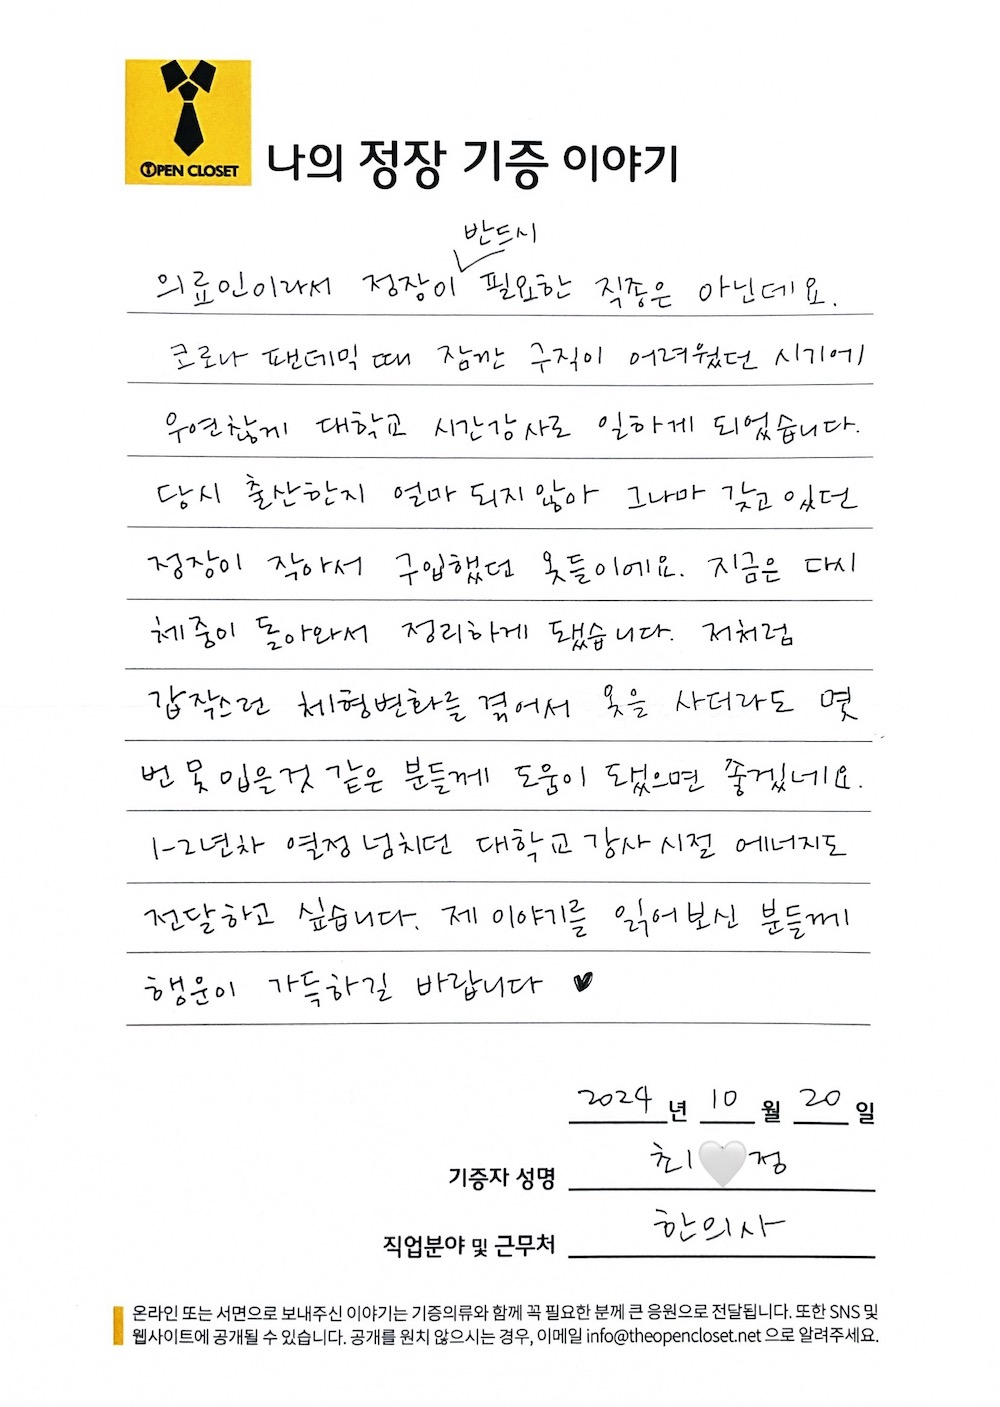 OPEN CLOSET
나의 정장 기증 이야기
반드시
의료인이라서 정장이 필요한 직종은 아닌데요.
코로나 팬데믹 때 잠깐 구직이 어려웠던 시기에
우연찮게 대학교 시간강사로 일하게 되었습니다.
당시 출산한지 얼마 되지 않아 그나마 갖고 있던
정장이 작아서 구입했던 옷들이에요. 지금은 다시
체중이 돌아와서 정리하게 됐습니다. 저처럼
갑작스런 체형변화를 겪어서 옷을 사더라도 몇
번 못 입을것 같은 분들께 도움이 됐으면 좋겠네요.
1-2년차 열정 넘치던 대학교 강사 시절 에너지도
전달하고 싶습니다. 제 이야기를 읽어보신 분들께
행운이 가득하길 바랍니다 ♥
2024 년 10 월 20 일
기증자 성명 최🤍정
직업분야 및 근무처 한의사
온라인 또는 서면으로 보내주신 이야기는 기증의류와 함께 꼭 필요한 분께 큰 응원으로 전달됩니다. 또한 SNS 및
웹사이트에 공개될 수 있습니다. 공개를 원치 않으시는 경우, 이메일 info@theopencloset.net 으로 알려주세요.